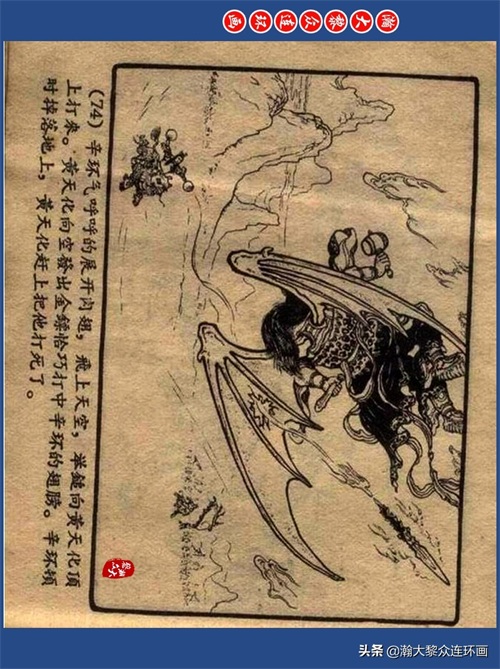 瀚大黎众连环画
(74) 辛环气呼呼的展开肉翅，飛上天空，举鎚向黄天化顶
上打来。黄天化向空發出金鏢恰巧打中辛环的翅膀。辛环顿
时掉落地上，黄天化赶上把他打死了。
头条 @瀚大黎众连环画